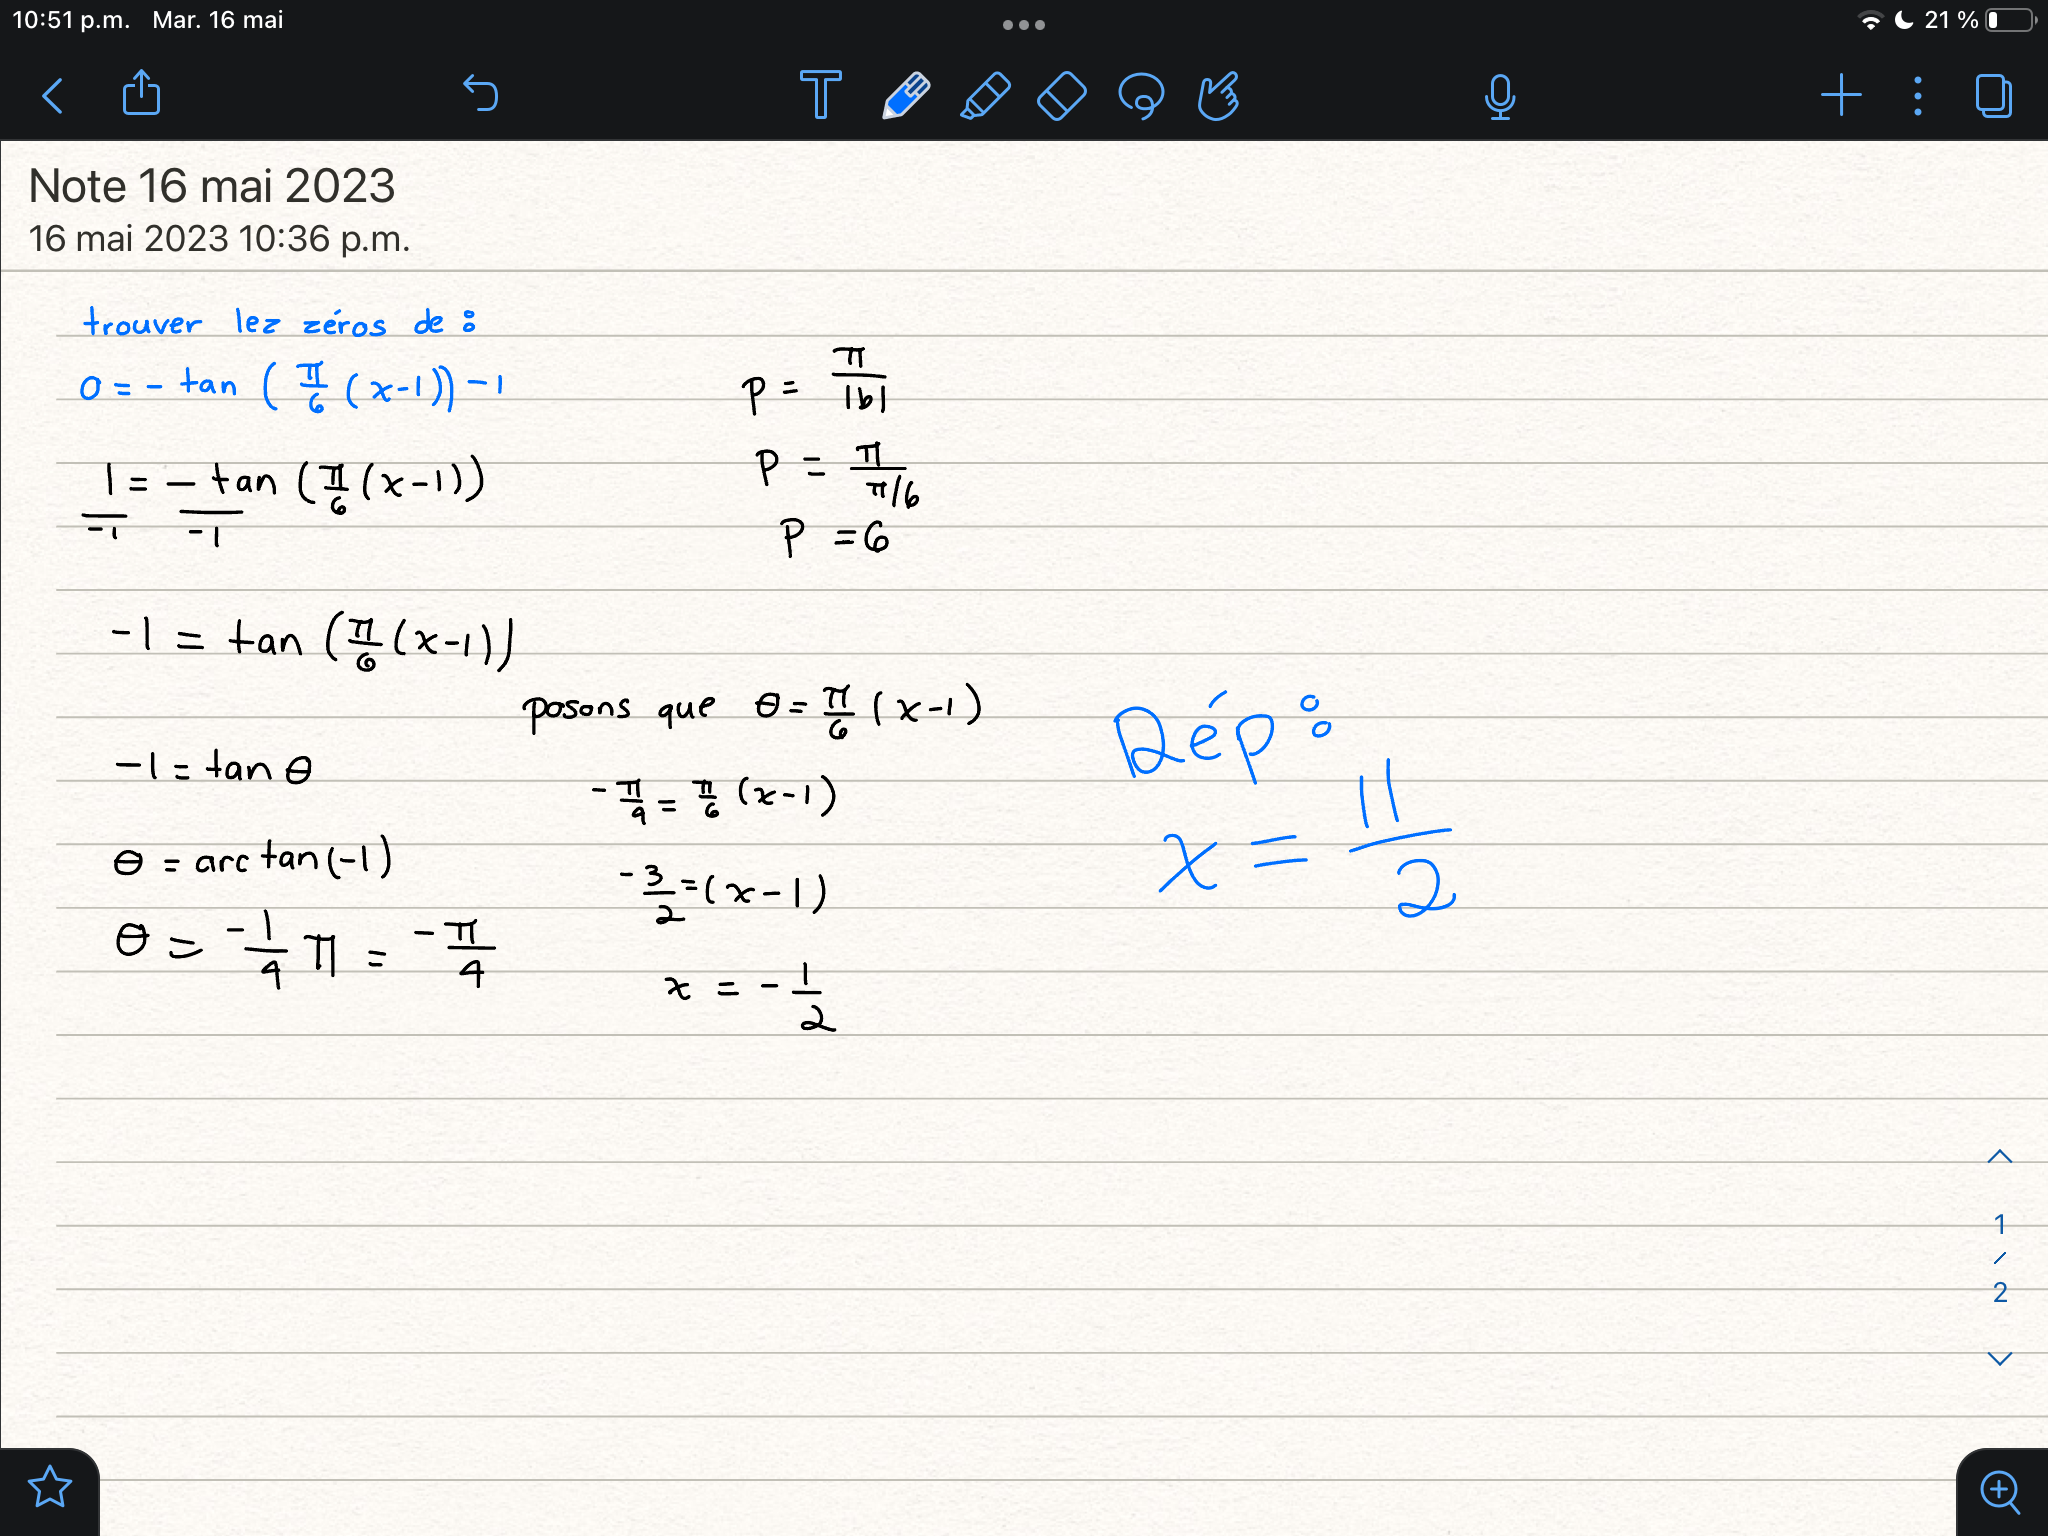 10:51 p.m. Mar. 16 mai
21 %
Note 16 mai 2023
16 mai 2023 10:36 p.m.
trouver lez zéros de :
0 = - tan ( π/6 (x-1)) - 1
1 = - tan ( π/6 (x-1))
-1 -1
-1 = tan ( π/6 (x-1))
-1 = tan θ
θ = arctan(-1)
θ = -1/4 π = -π/4
p = π/|b|
P = π/π/6
P = 6
posons que θ = π/6 (x-1)
-π/4 = π/6 (x-1)
-3/2 = (x-1)
x = -1/2
Rép :
x = 11/2
1
/
2